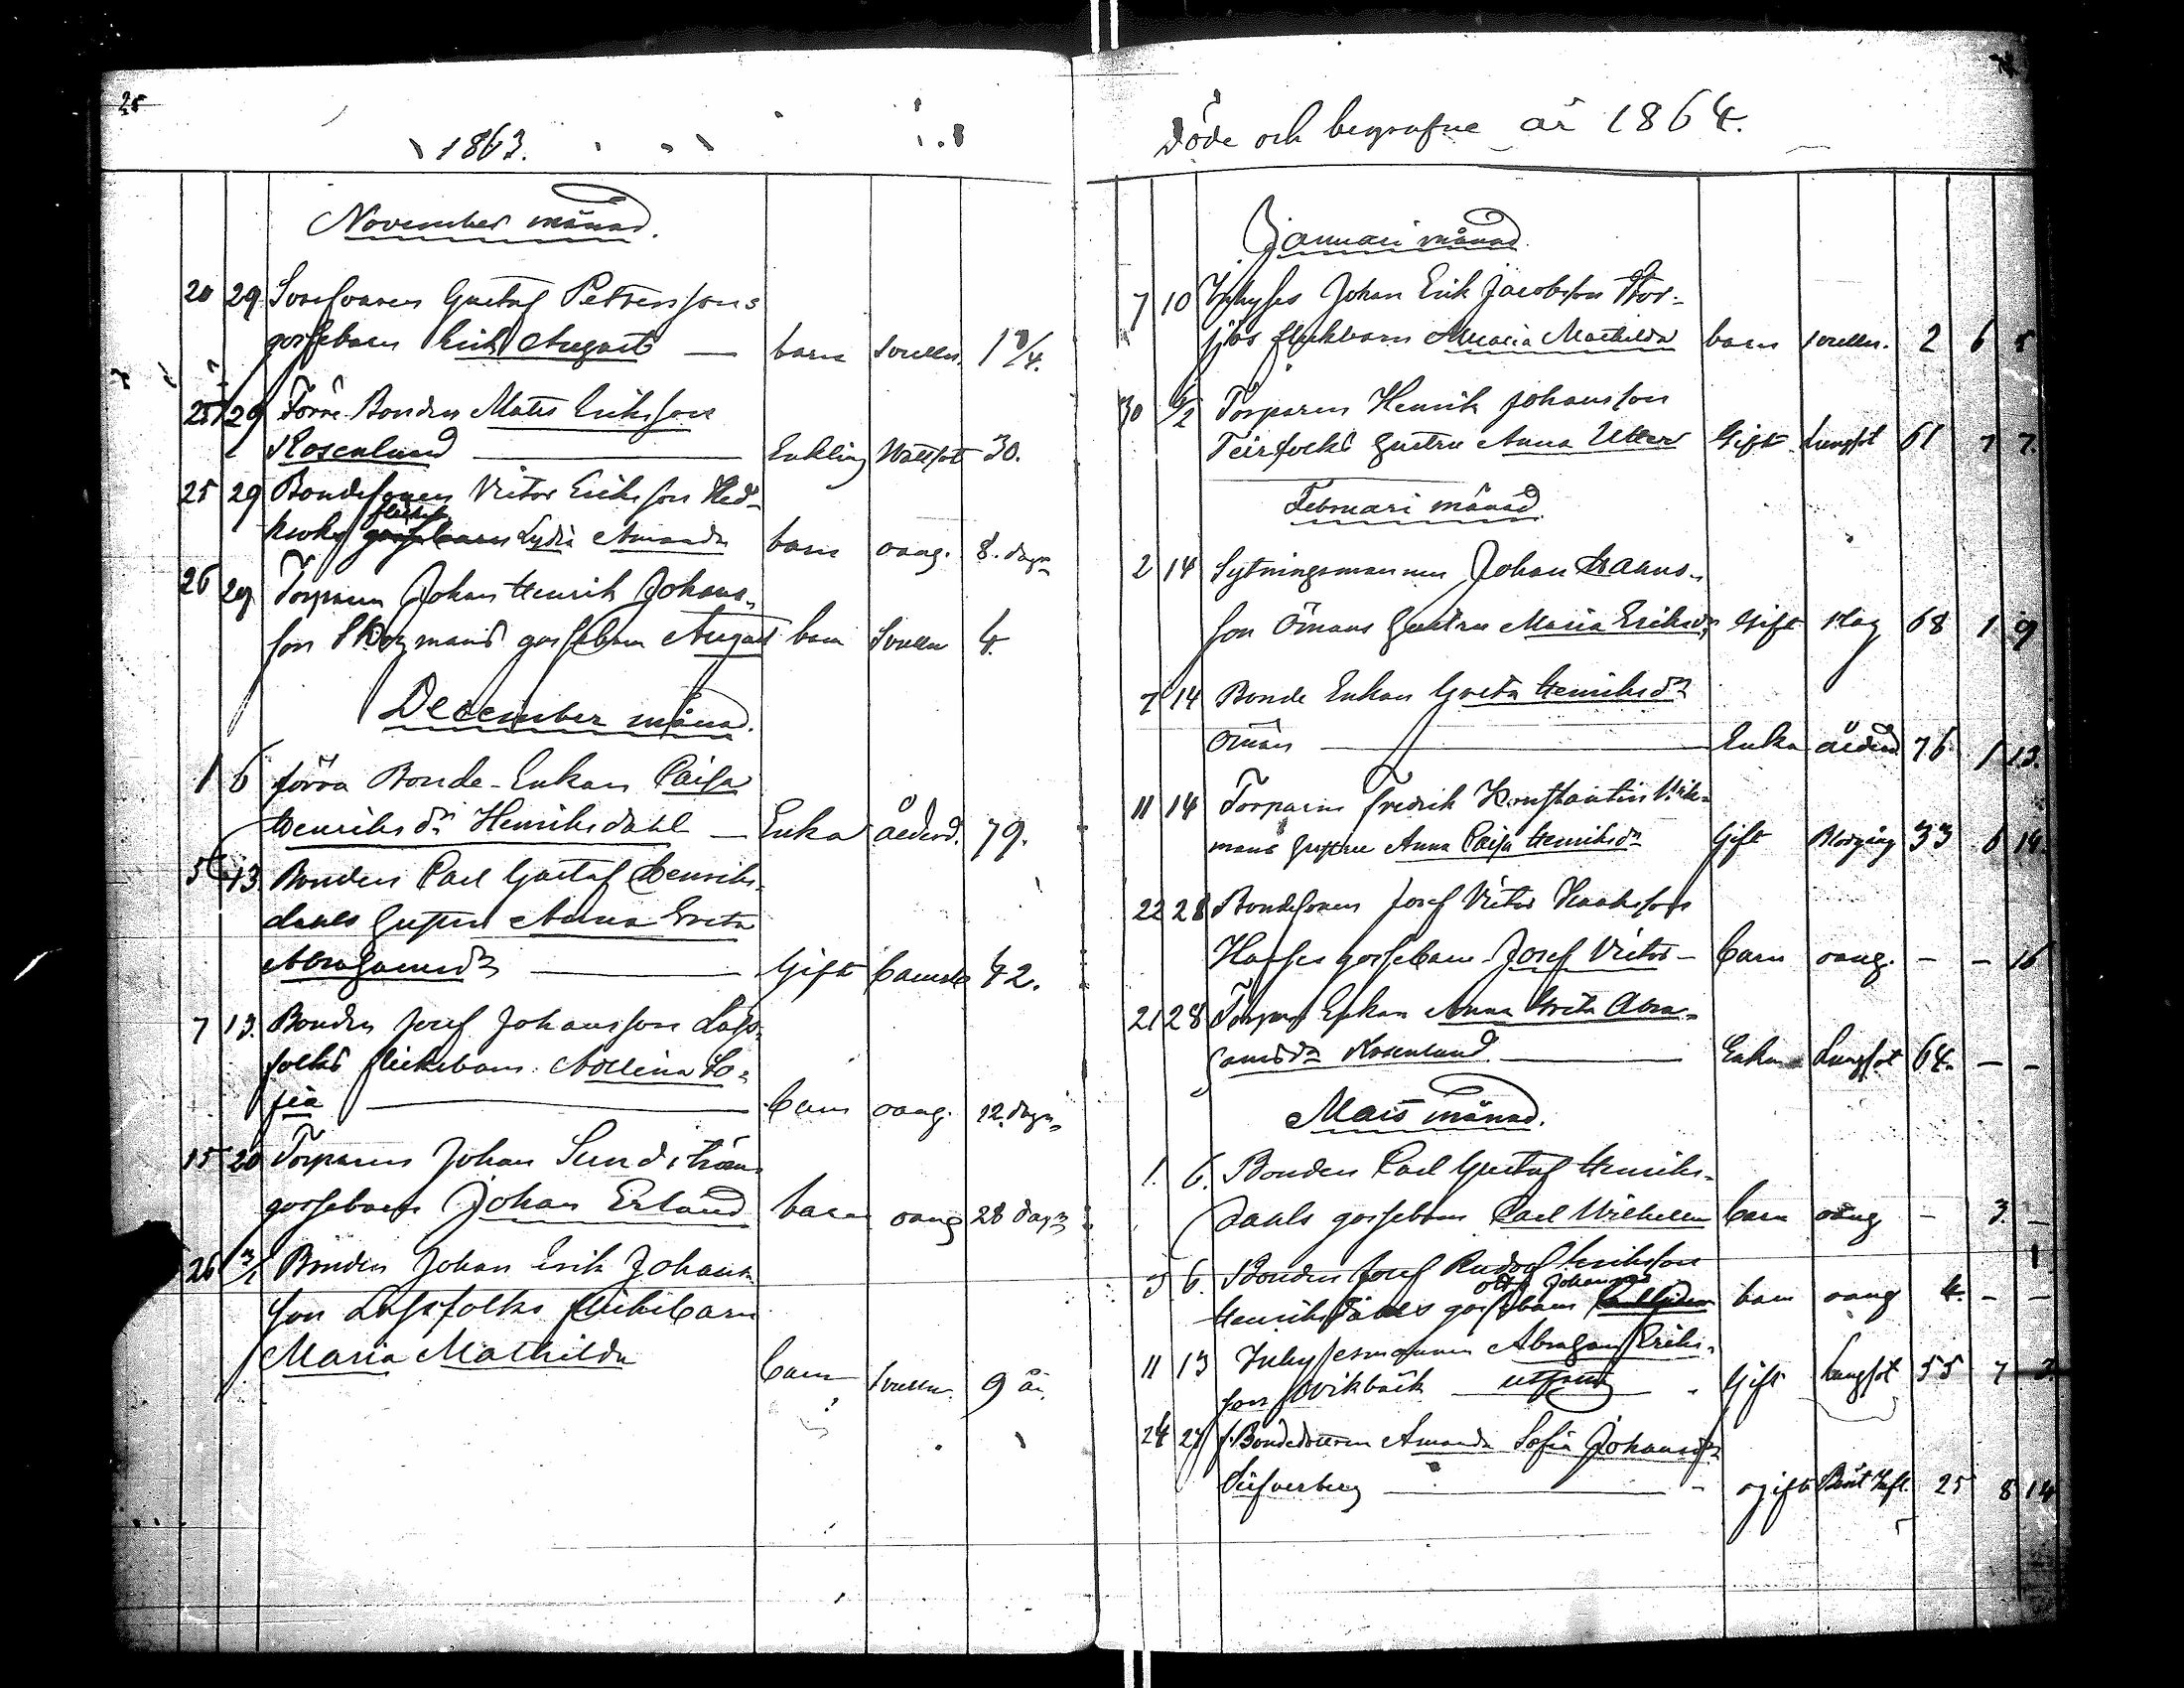 25
1863.
November månad.
20 29 Gustaf Petterssons
gossebarn Erik August — barn 1 3/4.
25 29 Förre Bonden Matts Eriksson
Rosenlund — Enkling Wattsot 30.
25 29 Bondesonen Victor Eriksson Hed-
flicke
gossebarn Lydia Amanda barn oang. 8. dagr
26 29 Torparen Johan Henrik Johans-
son Skogmans gossebarn August barn 4.
December månad.
1 6 förra Bonde-Enkan Caisa
Henriksdr Henriksdahl — Enka ålderd. 79.
5 13 Bonden Carl Gustaf Henriks-
dahls hustru Anna Greta
Abrahamsdr — Gift Barnsb 42.
7 13. Bonden Josef Johansson Lass-
folks flickebarn Adelina So-
fia — barn oang. 12. dagr
15 20 Torparen Johan Sundströms
gossebarn Johan Erland barn oang 28 dagr
26 3/1 Bonden Johan Erik Johans-
son Lassfolks flickebarn
Maria Mathilda barn 9 år.
Döde och begrafne år 1864.
Januari månad.
7 10 Johan Erik Jacobsson
flickbarn Maria Mathilda barn 2 6 5
30 4/2 Torparen Henrik Johansson
Teirfolks hustru Anna Utter Gift Lungsot 61 7 7.
Februari månad.
2 14 Sytningsmannen Johan
son Ömans hustru Maria Eriksdr Gift Slag 68 1 9
7 14 Bonde Enkan Greta Henriksdr
Öman — Enka ålderd 76 1 13.
11 14 Torparen Fredrik Konstantin Wik-
mans hustru Anna Caisa Henriksdr Gift Blodgång 33 6 14.
22 28 Bondesonen Josef Victor
gossebarn Josef Victor — barn oang. — — 16
21 28 Torpare Enkan Anna Greta Abra-
hamsdr Rosenlund — Enka Lungsot 64. — —
Mars månad.
1. 6. Bonden Carl Gustaf Henriks-
dahls gossebarn Carl Wilhelm barn oang — 3. —
3 6. Bonden Josef Rudolf Eriksson
Otto Johannes
Henriksdahls gossebarn barn oang 4. — —
11 13 Inhysesmannen Abraham Eriks-
son Wikbäck — — Gift Lungsot 55 7 2.
24 27 f. Bondedottren Amanda Sofia Johansdr
Silfverberg — ogift 25 8 14